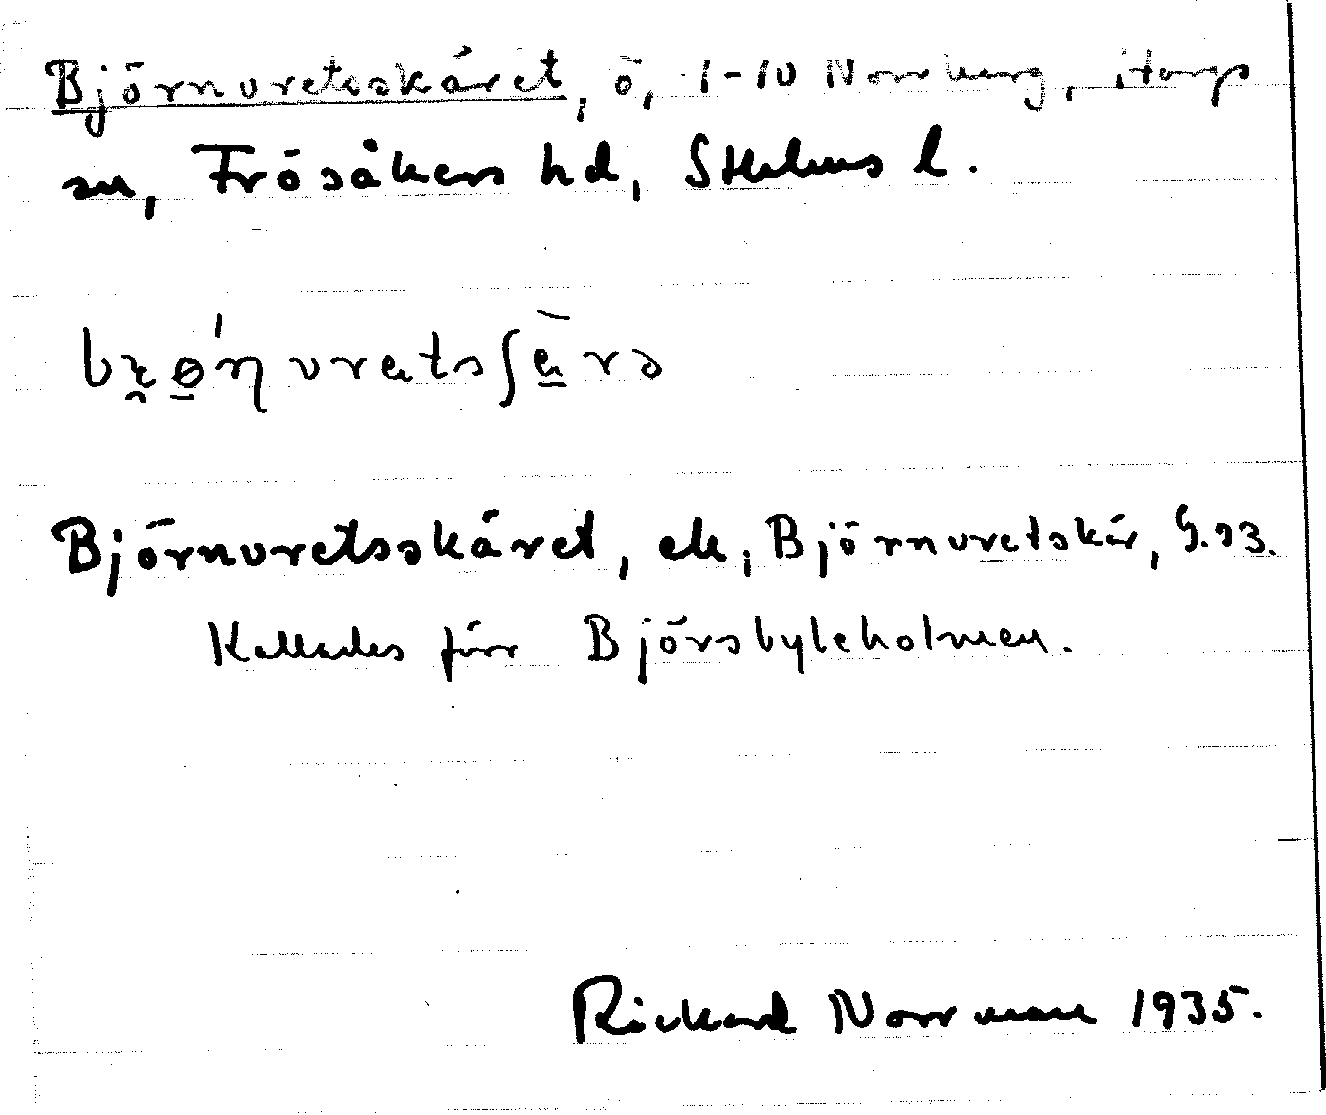 Björnvretsskäret, ö, 1-10 Norrskog, Harg
sn, Frösåkers hd, Sthlms l.
Björnvretsskäret, ek, Björnvretskär, G.93.
Kallades förr Björsbyleholmen.
Rickard Norrman 1935.